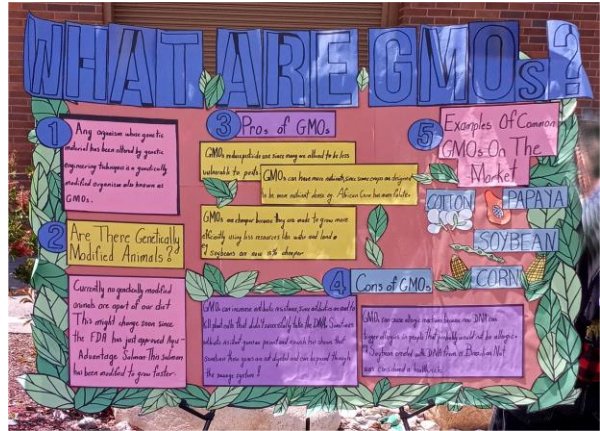 WHAT ARE GMOs?
1
Any organism whose genetic
material has been altered by genetic
engineering techniques is a genetically
modified organism also known as
GMOs.
2
Are There Genetically
Modified Animals?
Currently no genetically modified
animals are apart of our diet
This might change soon since
the FDA has just approved Aqu-
Advantage Salmon This salmon
has been modified to grow faster.
3
Pros of GMOs
GMOs reduce pesticide use since many are altered to be less
vulnerable to pests.
GMOs can have more nutrients since some crops are designed
to be more nutrient dense eg. African Corn has more folate.
GMOs are cheaper because they are made to grow more
efficiently using less resources like water and land
Soybeans are now cheaper
4
Cons of GMOs
GMOs can increase antibiotic resistance, since antibiotics are used to
kill plant cells that didn't successfully take the DNA. Sometimes
antibiotic resistant genes are present and research has shown that
sometimes these genes are not digested and can be spread through
the sewage system!
GMOs can cause allergic reactions because new DNA can
trigger allergies in people that probably would not be allergic
Soybean created with DNA from a Brazilian Nut
was considered a health risk
5
Examples Of Common
GMOs On The
Market
COTTON
PAPAYA
SOYBEAN
CORN